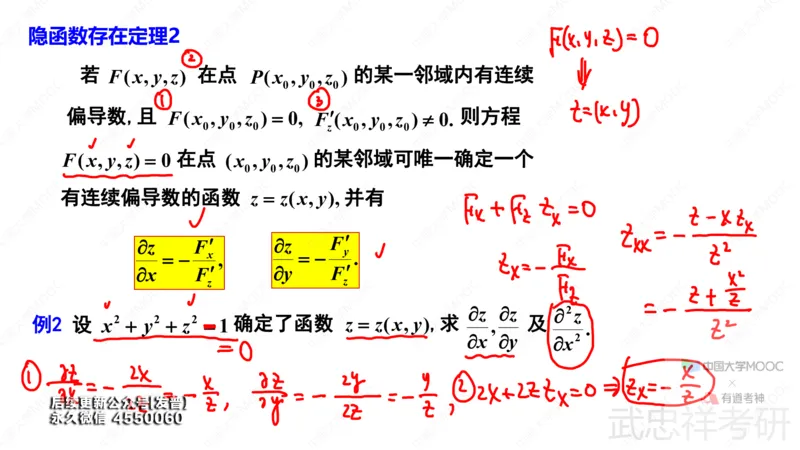 隐函数存在定理2
F(x,y,z)=0
⇓
z=(x,y)
② ① ③
若 F(x,y,z) 在点 P(x₀,y₀,z₀) 的某一邻域内有连续
偏导数, 且 F(x₀,y₀,z₀)=0, F′z(x₀,y₀,z₀)≠0. 则方程
F(x,y,z)=0 在点 (x₀,y₀,z₀) 的某邻域可唯一确定一个
有连续偏导数的函数 z=z(x,y), 并有
∂z/∂x = -F′x/F′z, ∂z/∂y = -F′y/F′z.
Fx+Fz zx=0
zx=-Fx/Fz
zxx=-(z-x zx)/z²
=-(z+x²/z)/z²
例2 设 x²+y²+z²-1确定了函数 z=z(x,y), 求 ∂z/∂x, ∂z/∂y 及 ∂²z/∂x².
=0
① ∂z/∂x=-2x/2z=-x/z, ∂z/∂y=-2y/2z=-y/z, ② 2x+2z zx=0 ⇒ zx=-x/z
中国大学MOOC
×
有道考神
后续更新公众号[发普]
永久微信 4550060
武忠祥考研